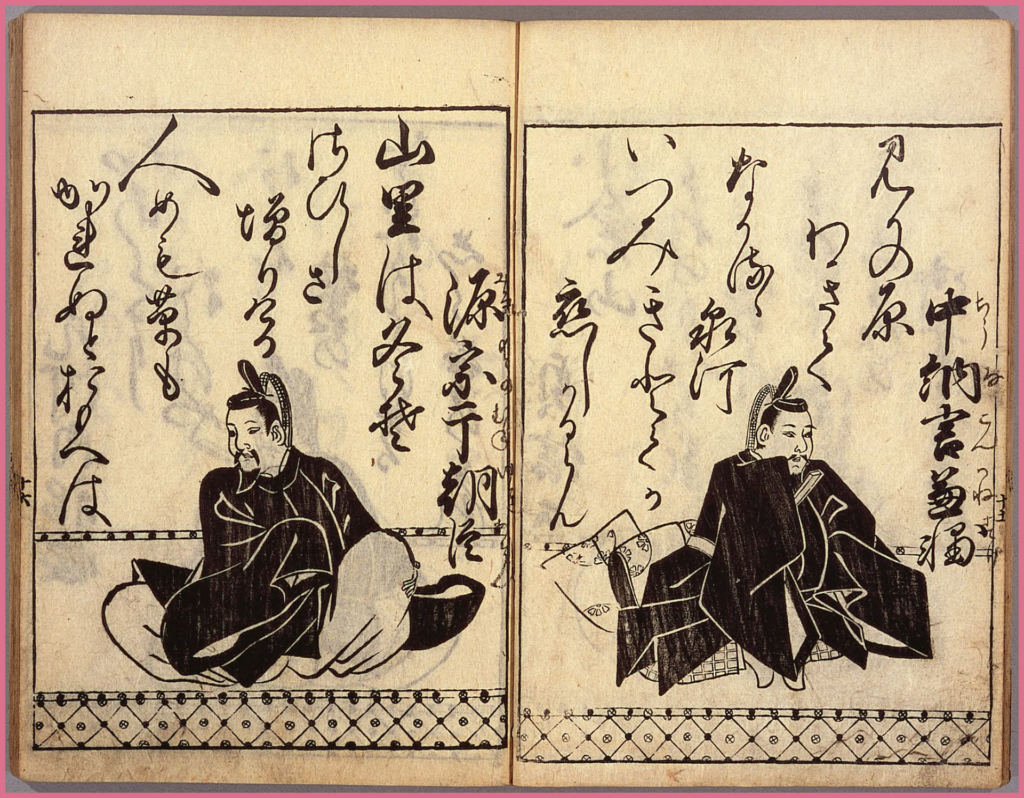 中納言兼輔
みかの原
わきて
なかるゝ
泉河
いつみきとてか
恋しかるらん
源宗于朝臣
山里は冬そ
さひしさ
増りける
人めも草も
かれぬとおもへは